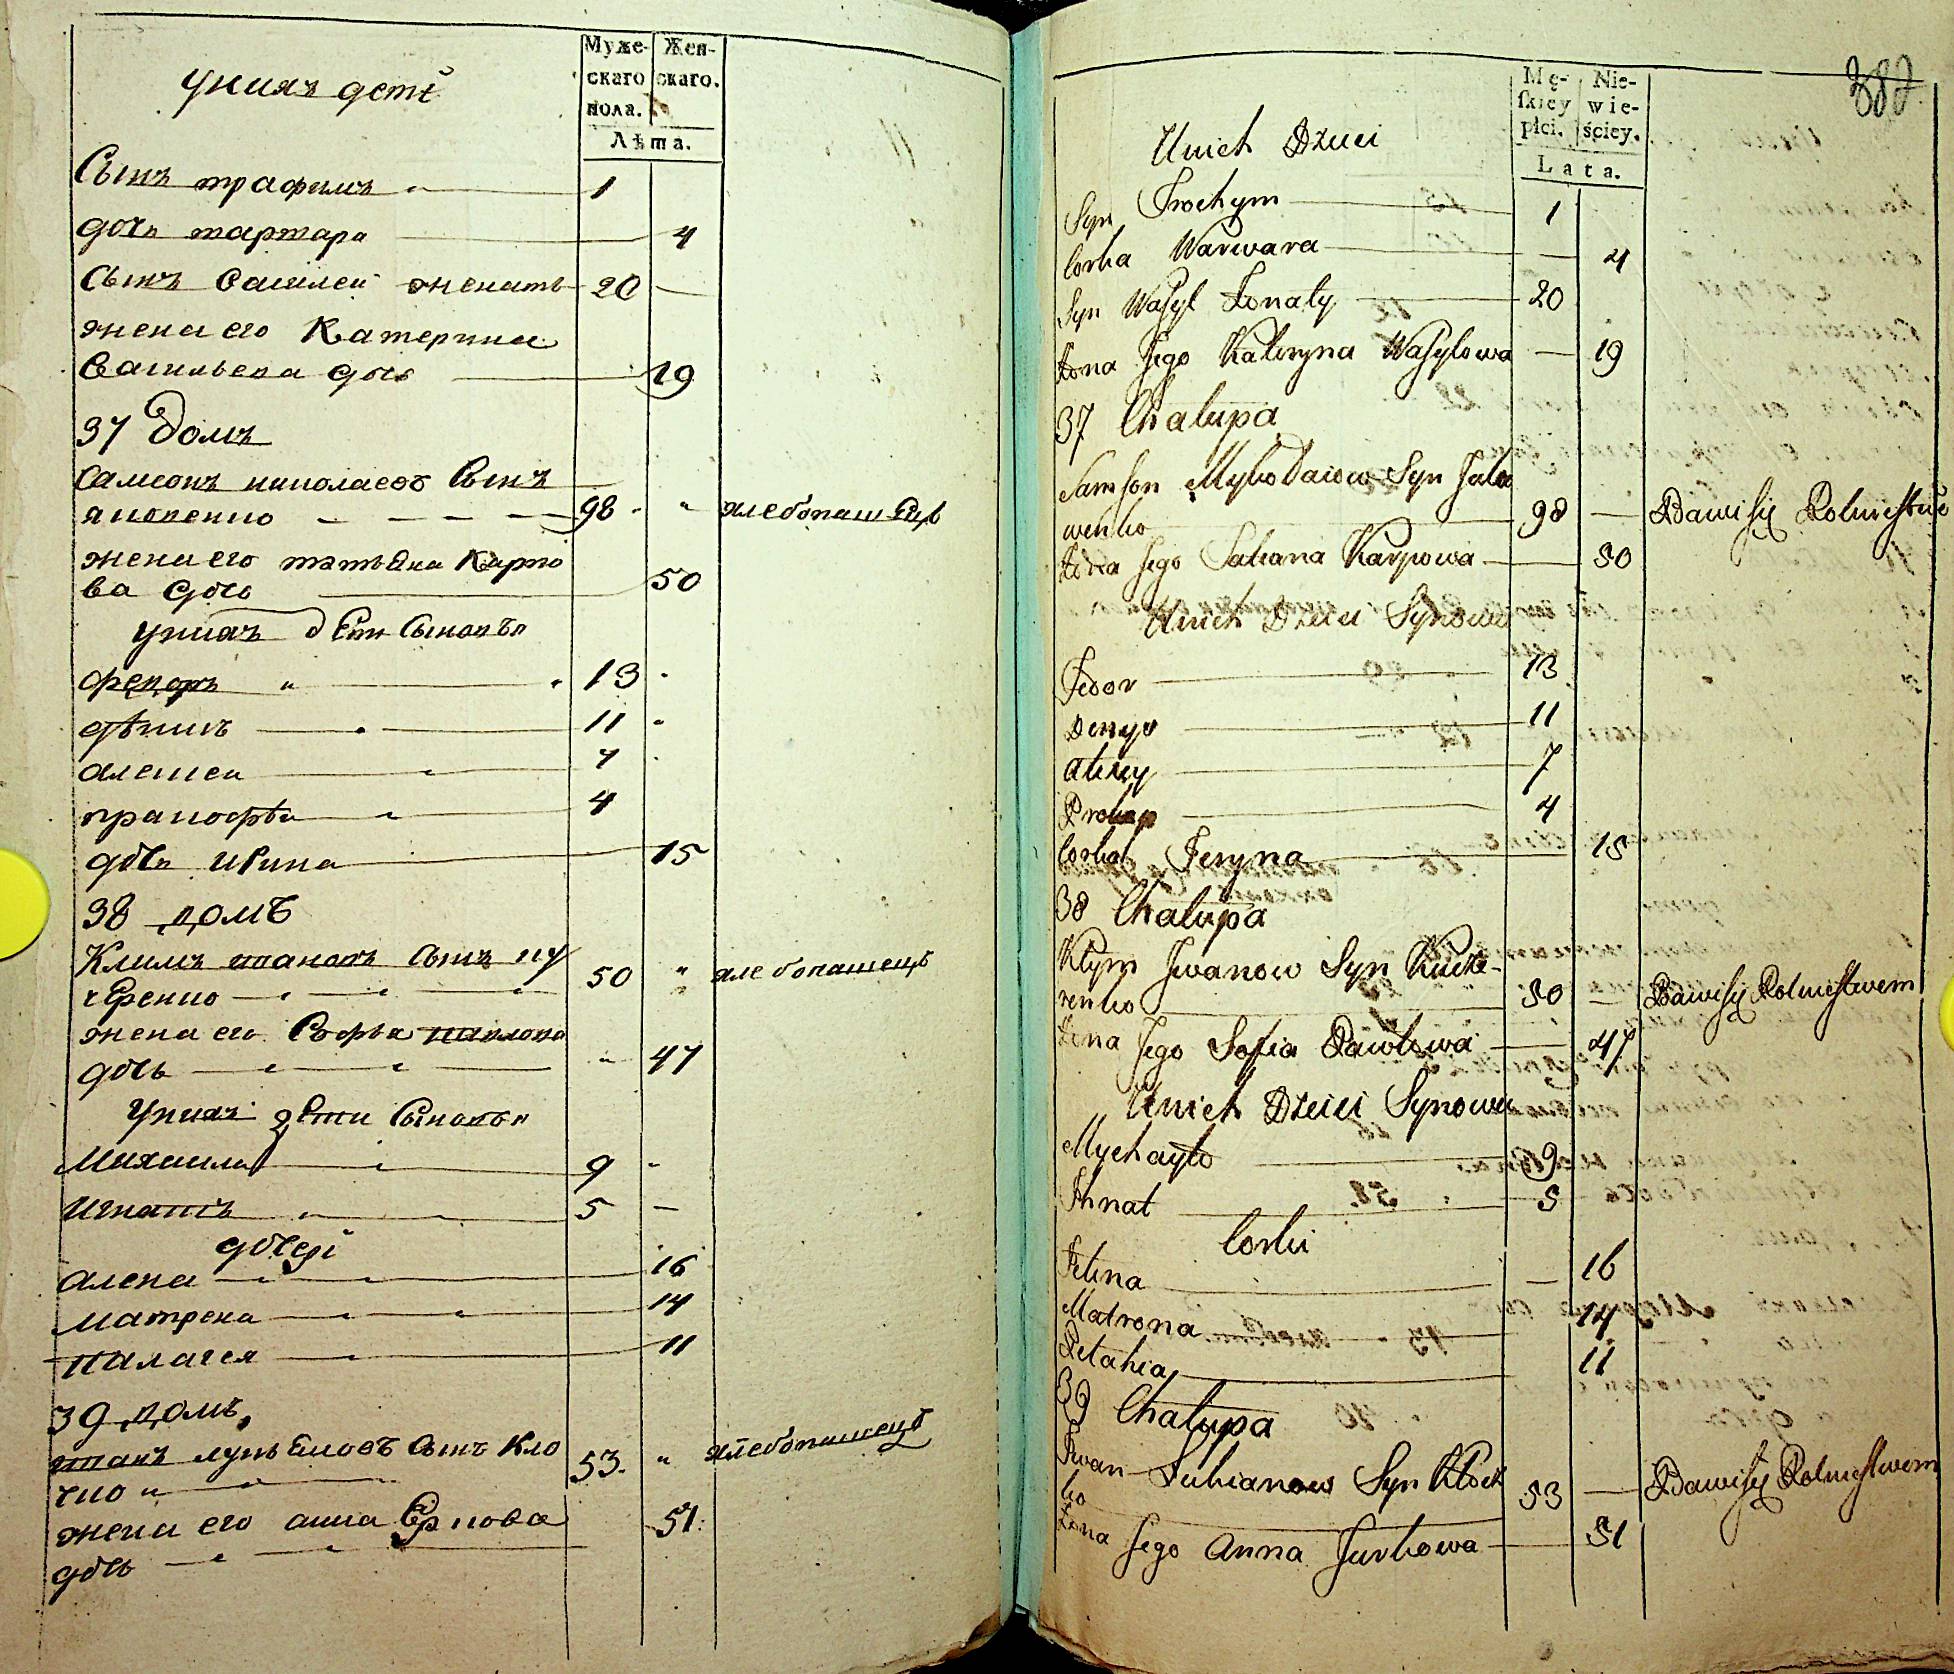 Муже- Жен-
скаго скаго.
пола.
Лѣта.
униихъ дети
Сынъ трафимъ 1
дочь Варвара 4
Сынъ Василеи женатъ 20
жена его Катерина
Васильева дочь 19
37 Домъ
Самсонъ николаевъ Сынъ
98 хлебопашецъ
жена его татьяна Карпо
ва дочь 50
униихъ дети Сыновья
федоръ 13
дѣнисъ 11
алексеи 7
пракофѣи 4
дочь ирина 15
38 домъ
Климъ ивановъ Сынъ ку
черенко 50 хлебопашецъ
жена его Софья павлова
дочь 47
униихъ дети Сыновья
Михаила 9
игнатъ 5
дочери
алена 16
матрена 14
палагея 11
39 домъ
иванъ лукьяновъ Сынъ кло
чко 53. хлебопашецъ
жена его анна
дочь 51.
382
Mę- Nie-
skiey wie-
płci. ściey.
Lata.
Unich Dzieci
Syn Trochym 1
Corka Warwara 4
Syn Wasyl Żonaty 20
Żona Jego Kateryna Wasylowa 19
37 Chałupa
Samson Mykołaiow Syn Jako
wenko 98 Bawi się Rolnictwe
Żona Jego Tatiana Karpowa 50
Unich Dzieci Synowie
Fedor 13
Denys 11
Alexy 7
Prokop 4
Corka Jeryna 15
38 Chałupa
Kłym Jwanow Syn Kucze-
renko 50 Bawi się Rolnictwem
Żona Jego Sofia Pawłowa 47
Unich Dzieci Synowie
Mychayło 9
Jhnat 5
Corki
Jelina 16
Matrona 14
Pelahia 11
39 Chałupa
Jwan Lukianow Syn Kłocz
ko 53 Bawi się Rolnictwem
Żona Jego Anna Jurkowa 51